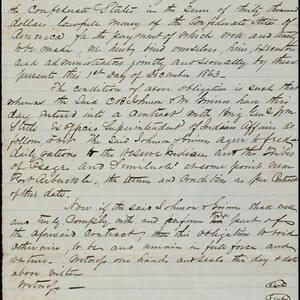 the Confederate States in the Sum of thirty thousand
dollars lawfull money of the Confederate States of
America for the payment of which well and truly
to be made, we hereby bind ourselves, our Executors
and administrators jointly and severally by these
presents this 1st day of December 1863.
The Condition of above obligation is such
that whereas the Said C B Johnson & Grimes have this
day entered into a Contract with
State & Superintendent of Indian Affairs as
follows, to wit. The Said Johnson & Grimes agree to feed
daily rations to the reserve Indians and the tribes
of at some point near
Fort Arbuckle, the terms and Conditions as per Contract
of this date.
Now if the said Johnson & Grimes Shall well
and truly Comply with and perform their part of
the aforesaid Contract, then this obligation to be void
otherwise to be and remain in full force and
virtue. Witness our hands and seals the day & date
above written
Witness —